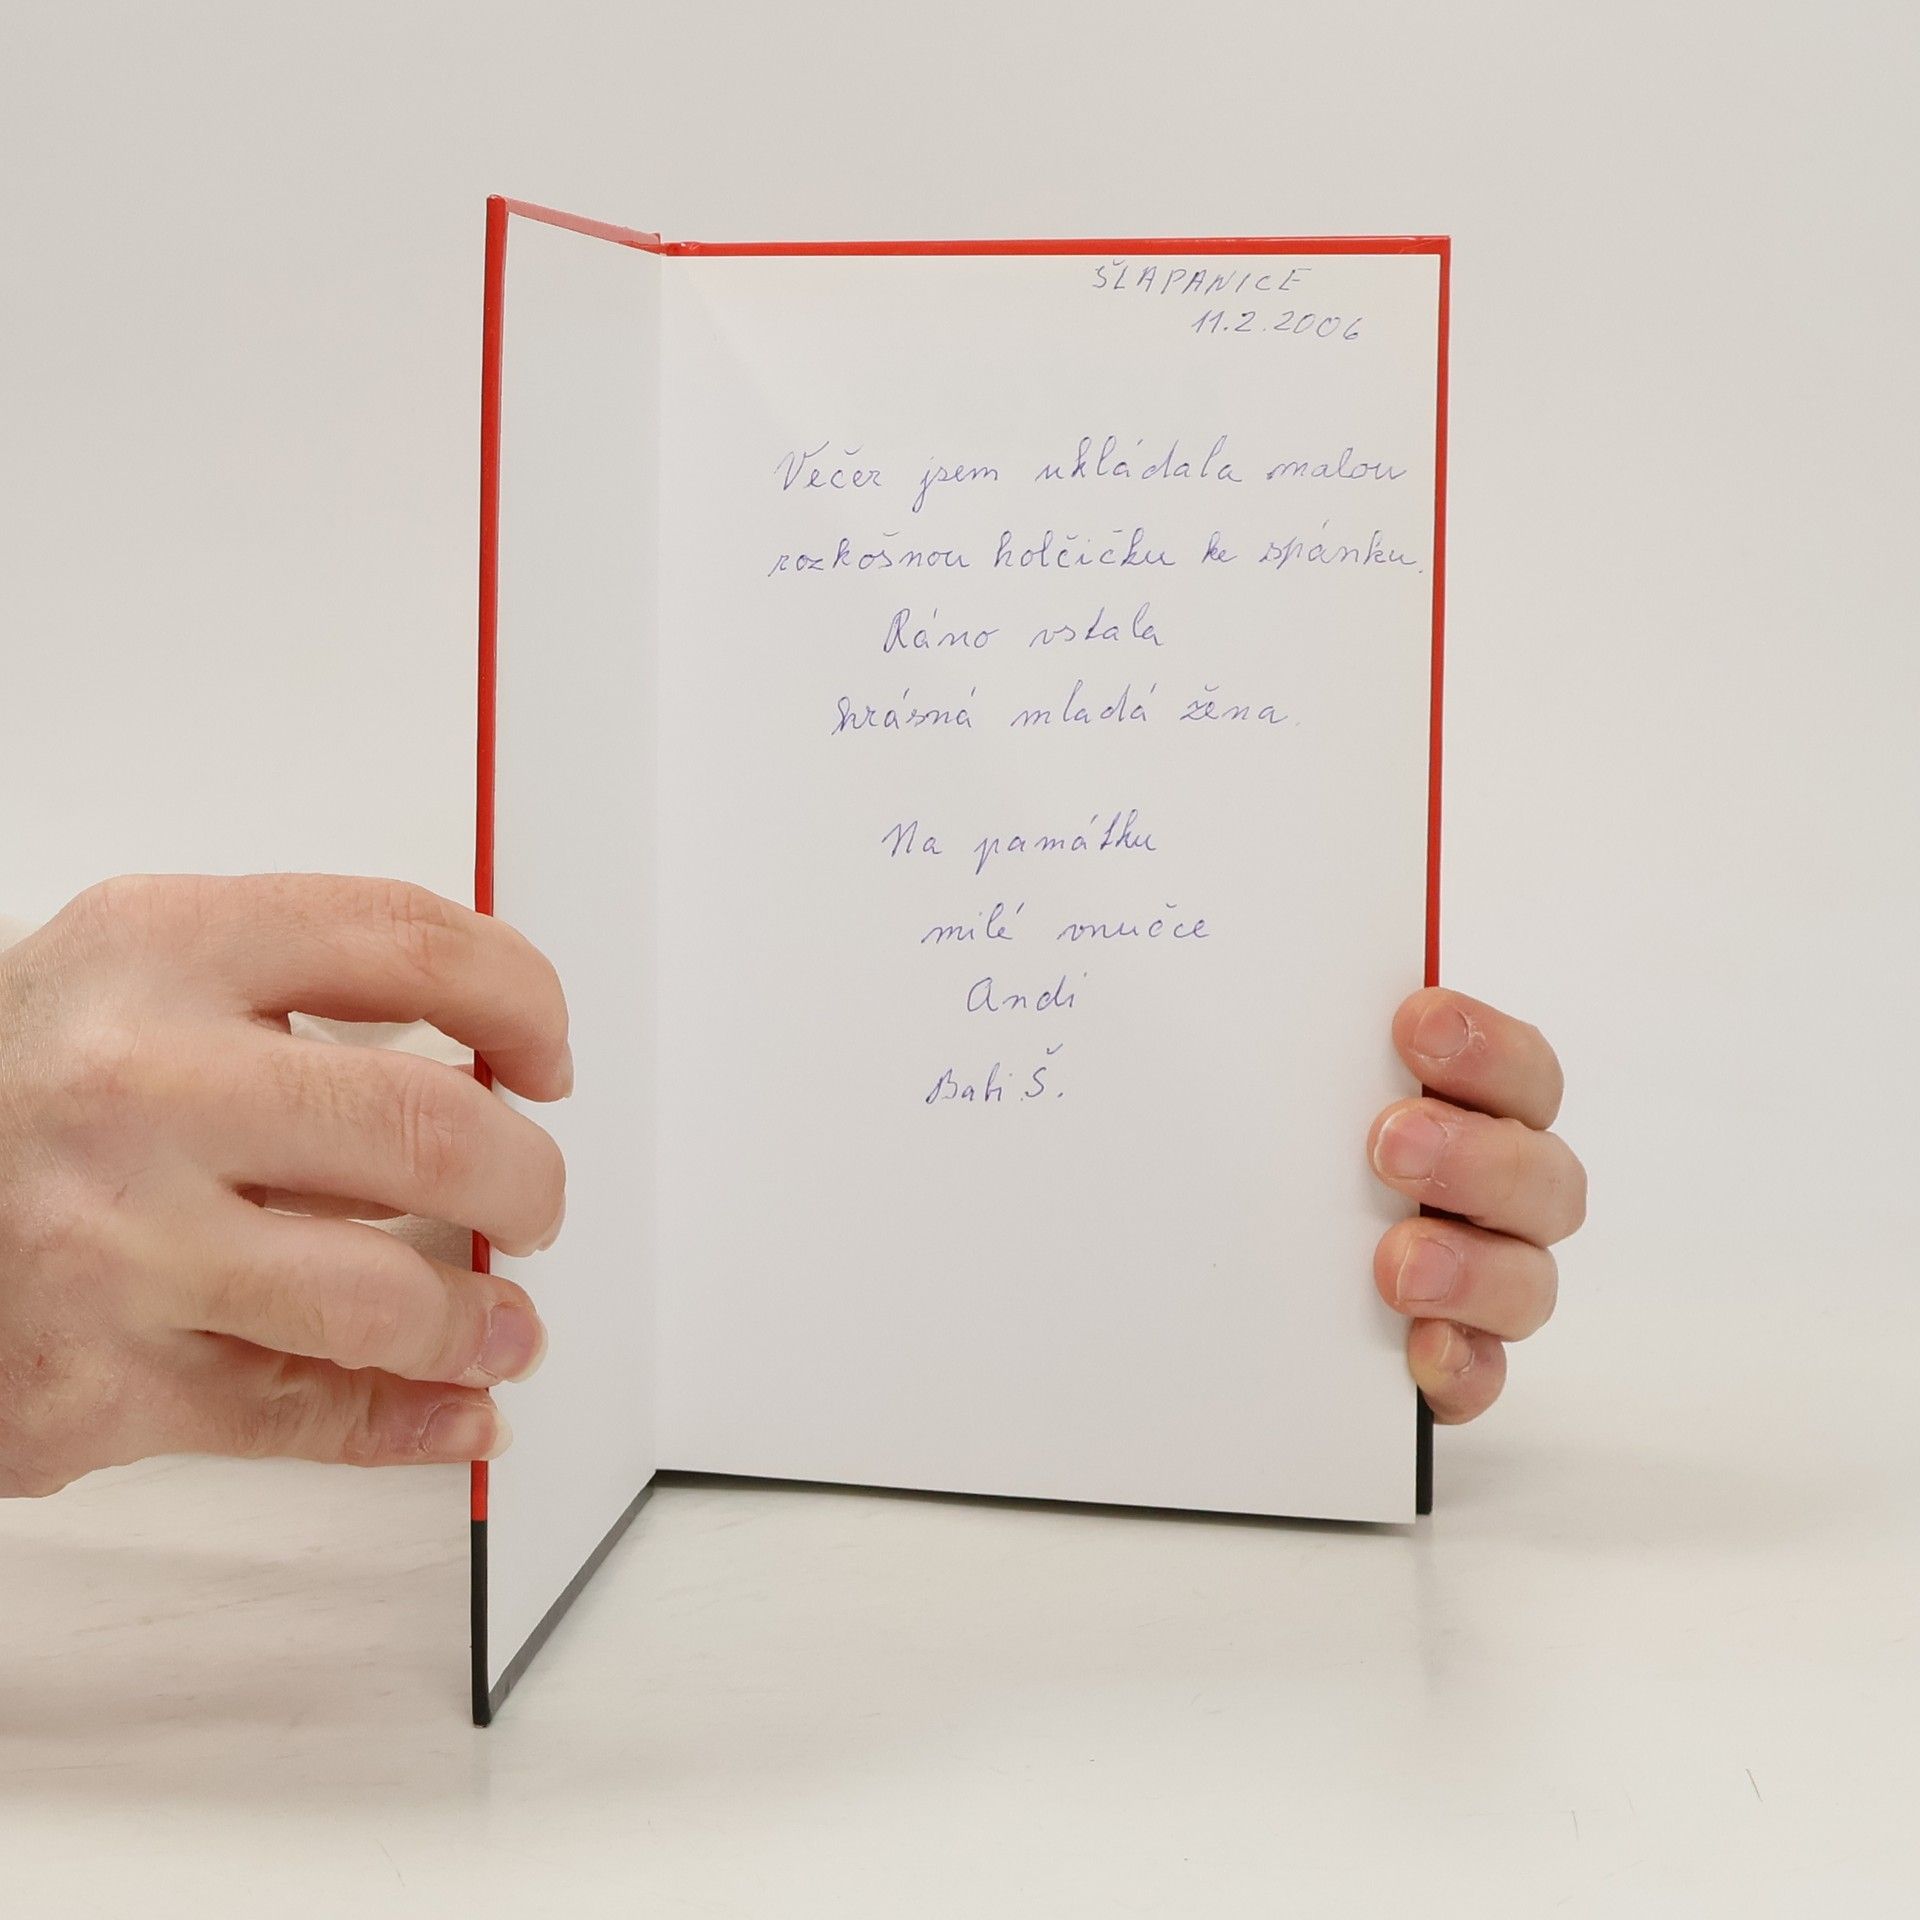 ŠLAPANICE
11.2.2006
Večer jsem ukládala malou
rozkošnou holčičku ke spánku.
Ráno vstala
krásná mladá žena.
Na památku
milé vnučce
Andi
Babi Š.